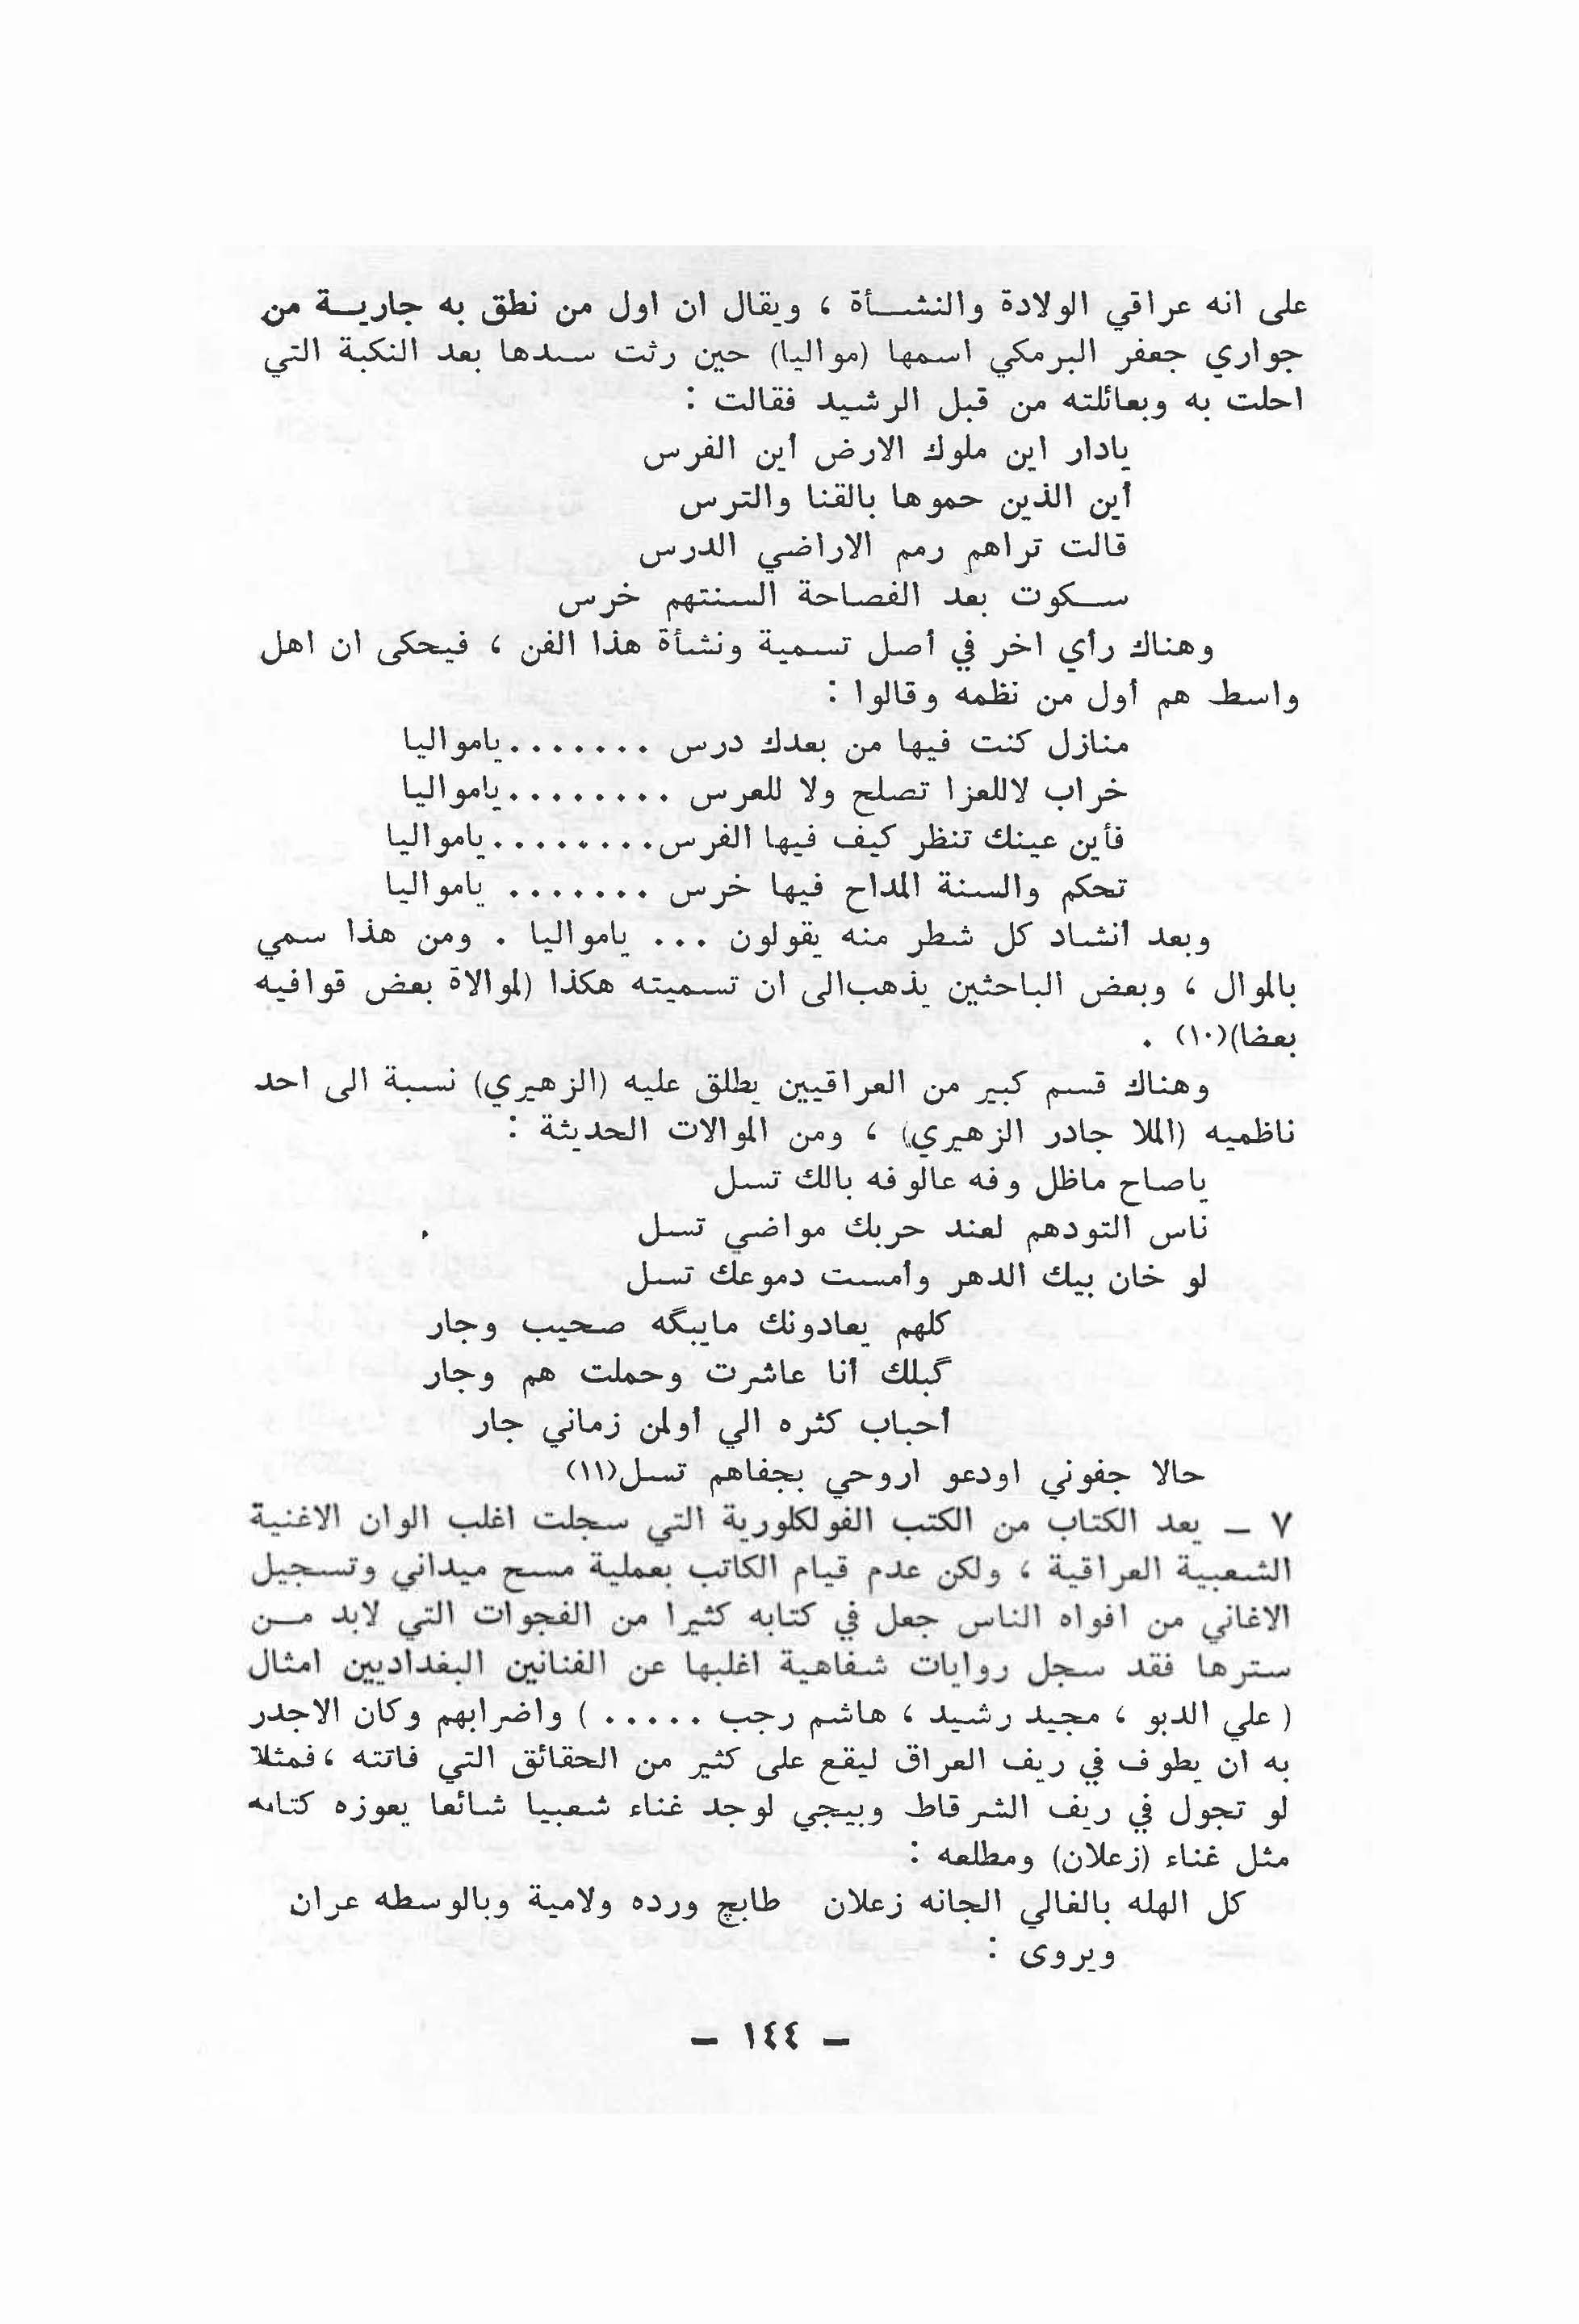 على انه عراقي الولادة والنشـــأة ، ويقال ان اول من نطق به جاريـــة من
جواري جعفر البرمكي اسمها (مواليا) حين رثت سيدها بعد النكبة التي
احلت به وبعائلته من قبل الرشيد فقالت :
يادار اين ملوك الارض أين الفرس
أين الذين حموها بالقنا والترس
قالت تراهم رمم الاراضي الدرس
ســكوت بعد الفصاحة السنتهم خرس
وهناك رأي اخر في أصل تسمية ونشأة هذا الفن ، فيحكى ان اهل
واسط هم أول من نظمه وقالوا :
منازل كنت فيها من بعدك درس .......يامواليا
خراب لاللعزا تصلح ولا للعرس ........يامواليا
فأين عينك تنظر كيف فيها الفرس........يامواليا
تحكم والسنة المداح فيها خرس ....... يامواليا
وبعد أنشاد كل شطر منه يقولون ... يامواليا . ومن هذا سمي
بالموال ، وبعض الباحثين يذهب الى ان تسميته هكذا (لموالاة بعض قوافيه
بعضا)(١٠) .
وهناك قسم كبير من العراقيين يطلق عليه (الزهيري) نسبة الى احد
ناظميه (الملا جادر الزهيري) ، ومن الموالات الحديثة :
ياصاح ماظل وفه عالوفه بالك تسل
ناس التودهم لعند حربك مواضي تسل
لو خان بيك الدهر وأمست دموعك تسل
كلهم يعادونك مايبگه صحيب وجار
گبلك أنا عاشرت وحملت هم وجار
أحباب كثره الي أولمن زماني جار
حالا جفوني اودعو اروحي بجفاهم تسل(١١)
٧ ــ يعد الكتاب من الكتب الفولكلورية التي سجلت اغلب الوان الاغنية
الشعبية العراقية ، ولكن عدم قيام الكاتب بعملية مسح ميداني وتسجيل
الاغاني من افواه الناس جعل في كتابه كثيرا من الفجوات التي لابد مــن
سترها فقد سجل روايات شفاهية اغلبها عن الفنانين البغداديين امثال
( علي الدبو ، مجيد رشيد ، هاشم رجب ..... ) واضرابهم وكان الاجدر
به ان يطوف في ريف العراق ليقع على كثير من الحقائق التي فاتته ،فمثلا
لو تجول في ريف الشرقاط وبيجي لوجد غناء شعبيا شائعا يعوزه كتابه
مثل غناء (زعلان) ومطلعه :
كل الهله بالغالي الجانه زعلان طابچ ورده ولامية وبالوسطه عران
ويروى :
– ١٤٤ –